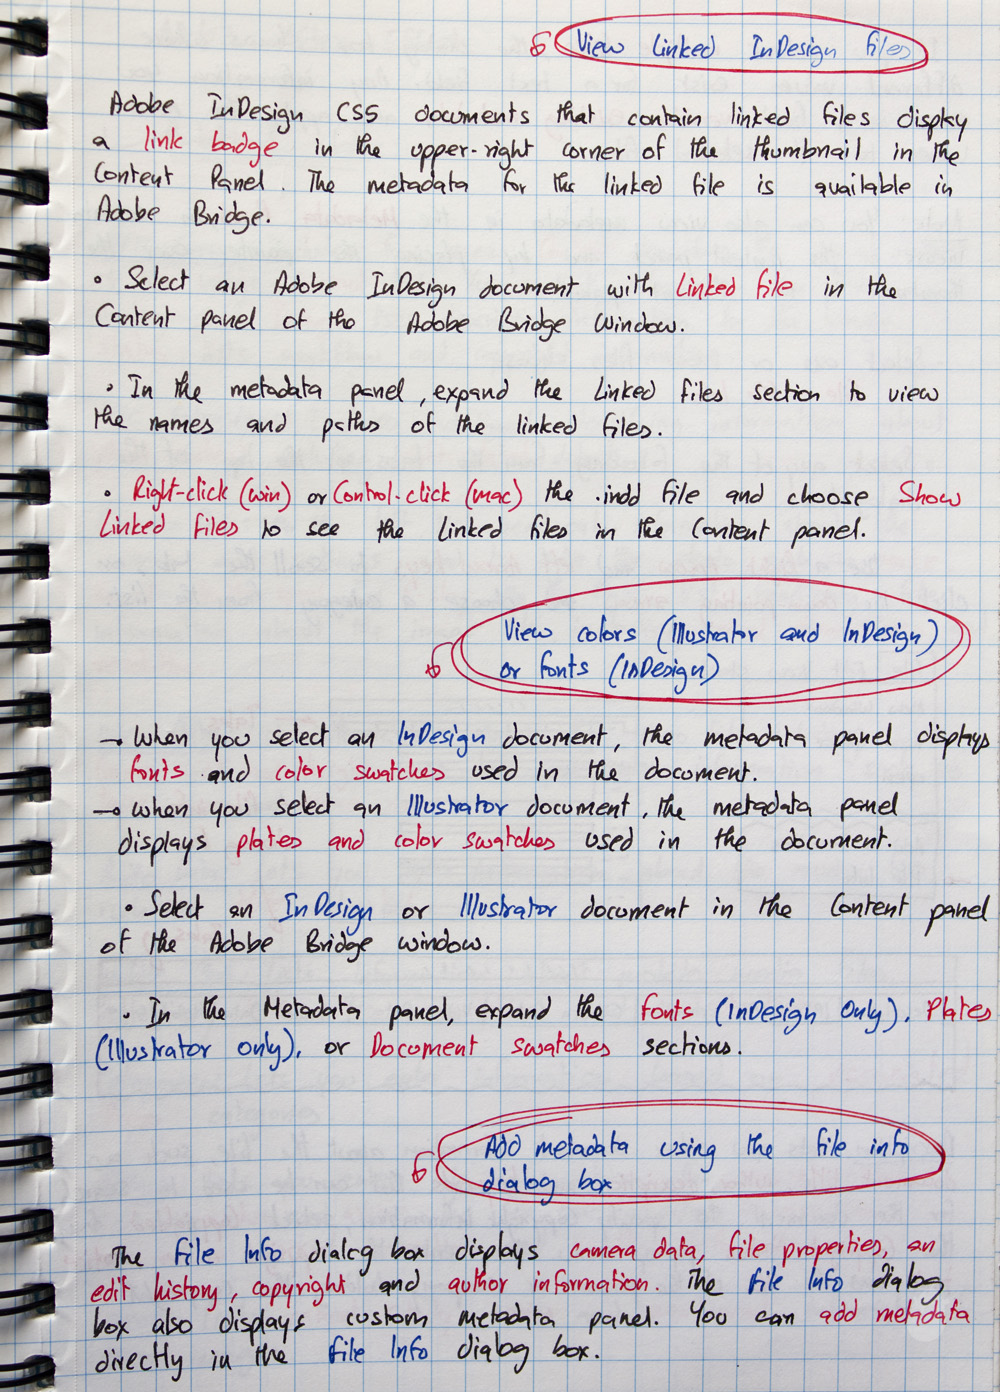 View Linked InDesign files
Adobe InDesign CS5 documents that contain linked files display
a link badge in the upper-right corner of the thumbnail in the
Content Panel. The metadata for the linked file is available in
Adobe Bridge.
• Select an Adobe InDesign document with Linked file in the
Content panel of the Adobe Bridge window.
• In the metadata panel, expand the Linked files section to view
the names and paths of the linked files.
• Right-click (win) or Control-click (mac) the .indd file and choose Show
Linked files to see the Linked files in the Content panel.
View colors (Illustrator and InDesign)
or fonts (InDesign)
→ When you select an InDesign document, the metadata panel displays
fonts and color swatches used in the document.
→ When you select an Illustrator document, the metadata panel
displays plates and color swatches used in the document.
• Select an InDesign or Illustrator document in the Content panel
of the Adobe Bridge window.
• In the Metadata panel, expand the fonts (InDesign Only), Plates
(Illustrator only), or Document swatches sections.
Add metadata using the file info
dialog box
The file Info dialog box displays camera data, file properties, an
edit history, copyright and author information. The file Info dialog
box also displays custom metadata panel. You can add metadata
directly in the file Info dialog box.